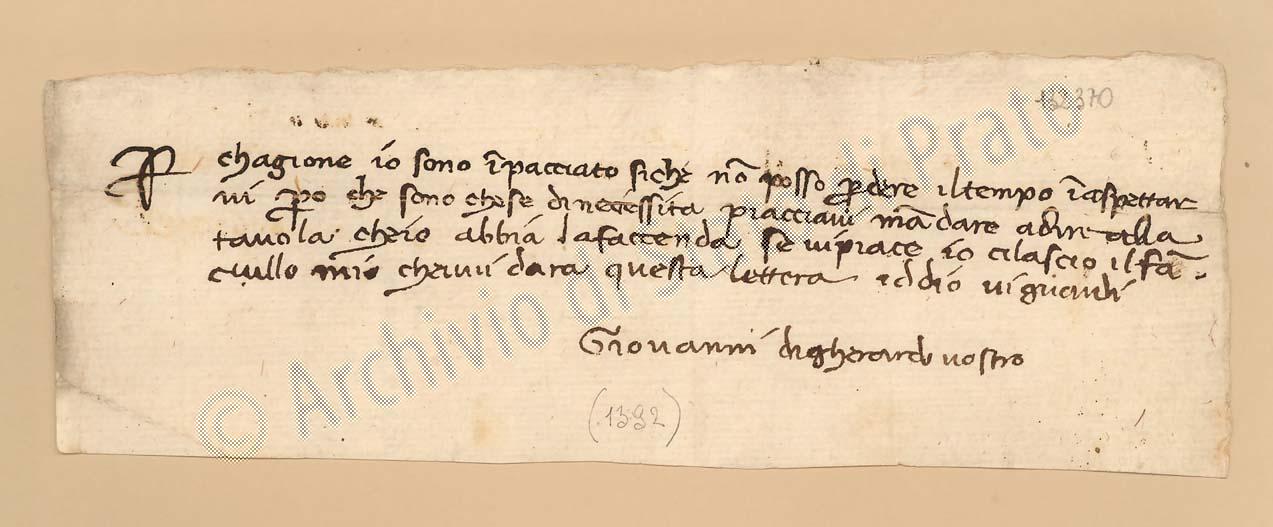 132370
P chagione io sono īpacciato siche nō posso perdere il tempo ī aspettar
vi pero che sono chose di necessita piacciavi mādare a dire alla
tavola cheio abbia la faccenda se vi piace io cilascio il fā-
ciullo mio chevvi dara questa lettera iddio vi guardi
Giovanni di gherardo vostro
(1392)
© Archivio di Prato